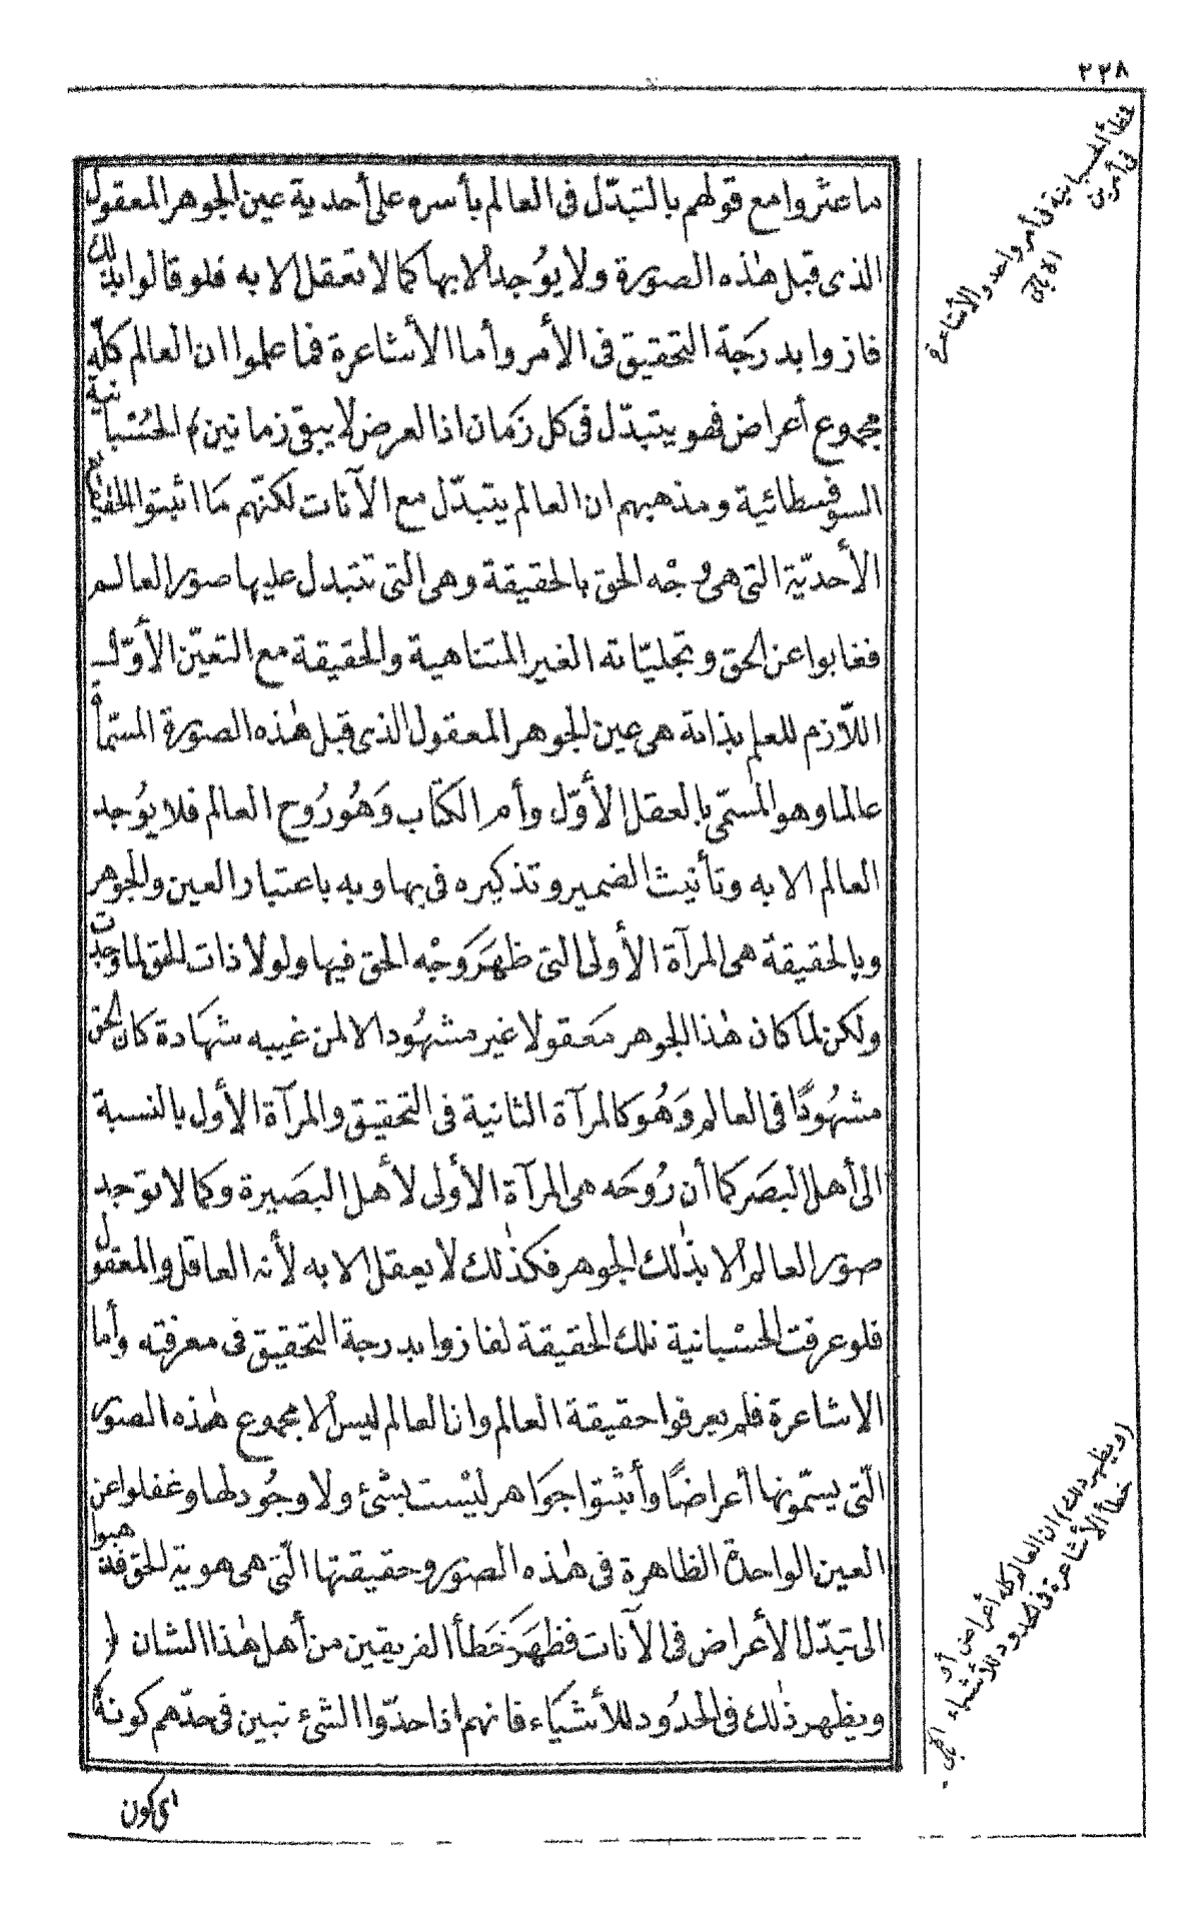 ٢٢٨
خطأ الحسبانية فى أمر واحد والأشاعرة
فى أمرين
ما عثروا مع قولهم بالتبدّل فى العالم بأسره على أحدية عين الجوهر المعقول
الذى قبل هٰذه الصورة ولا يوُجد الا بها كما لا تعقل الا به فلو قالوا بذلك
فازوا بدرَجة التحقيق فى الأمر وأما الأشاعرة فما علموا ان العالم كلّه
مجموع أعراض فهو يتبدّل فى كل زَمان اذ العرض لا يبقى زمانين﴾ الحُسْبانية
السوفسطائية ومذهبهم ان العالم يتبدّل مع الآنات لكنّهم مَا اثبتوا الحقيقة
الأحديّة التى هى وُجْه الحق بالحقيقة وهى التى تتبدل عليها صور العالم
فغابوا عن الحق وتجليّاته الغير المتناهية والحقيقة مع التعيّن الأوّل
اللاّزم للعلم بذاته هى عين الجوهر المعقول الذى قبل هٰذه الصورة المسمّاة
عالما وهو المسمّى بالعقل الأوّل وأم الكتاب وَهُو رُوح العالم فلا يوُجد
العالم الا به وتأنيث الضمير وتذكيره فى بها وبه باعتبار العين والجوهر
وبالحقيقة هى المرآة الأولى التى ظهَرَ وَجْه الحق فيها ولولا ذات الحق لما وجدت
ولكن لما كان هٰذا الجوهر مَعقولا غير مشهُود الا لمن غيبه شهَادة كان الحق
مشهُودًا فى العالم وَهُو كالمرآة الثانية فى التحقيق والمرآة الأول بالنسبة
الى أهل البصَر كما أن رُوحَه هى المرآة الأولى لأهل البصَيرة وكما لا توجد
صور العالم الا بذٰلك الجوهر فكذٰلك لا يعقل الا به لأنه العاقل والمعقول
فلو عرفت الحسْبانية تلك الحقيقة لفازوا بدرجة التحقيق فى معرفته وأما
الاشاعرة فلم يعرفوا حقيقة العالم وان العالم ليس الا مجموع هٰذه الصور
الّتى يسمّونها أعراضًا وأثبتوا جوَاهر ليْست بشئ ولا وجُود لها وغفلوا عن
العين الواحدة الظاهرة فى هٰذه الصور وحقيقتها الّتى هى هوية الحق فذهبوا
الى تبدّل الأعراض فى الآنات فظهَرَ خَطأ الفريقين من أهل هٰذا الشان ﴿
ويظهر ذٰلك فى الحدُود للأشيَاء فانهم اذا حدّوا الشئ تبين فى حدّهم كونه
(ويظهر ذلك) ان العالم كله أعراض أى
خطأ الأشاعرة فى الحدود للأشياء
اى كون